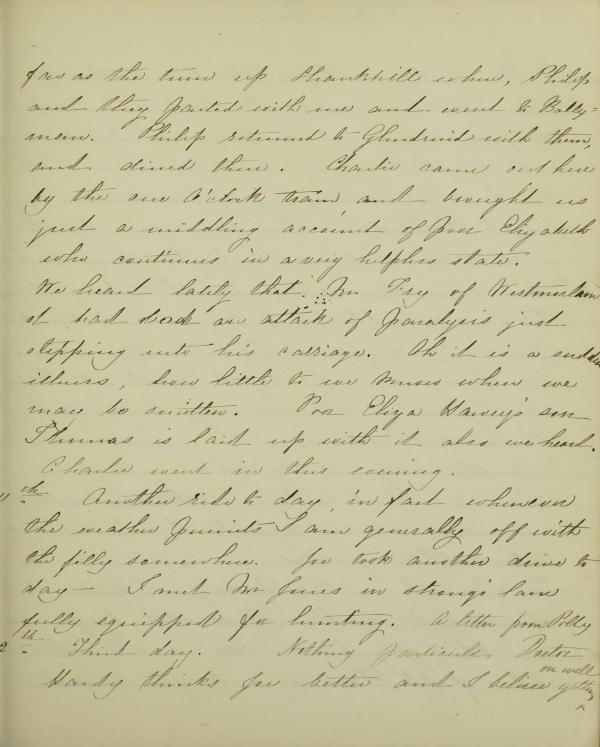 far as the turn up Shankhill when, Philip
and they parted with me and went to Bally=
man. Philip returned to Glendruid with them,
and dined there. Charlie came out here
by the one O'clock train and brought us
just a middling account of poor Elizabeth
who continues in a very helpless state.
We heard lately that Mr Fry of Westmorlan
st had had an attack of paralysis just
stepping into his carriage. Oh it is a sudden
illness, how little to we know when we
may be smitten. Poor Eliza Harvey's son
Thomas is laid up with it also we heard.
Charlie went in this evening.
11th Another ride to day, in fact whenever
the weather permits I am generally off with
the filly somewhere. Joe took another drive to
day — I met Mr Jones in strong's lane
fully equipped for hunting. A letter from Polly
2th Third day. Nothing particular. Doctor
Hardy thinks Joe better and I believe getting on well